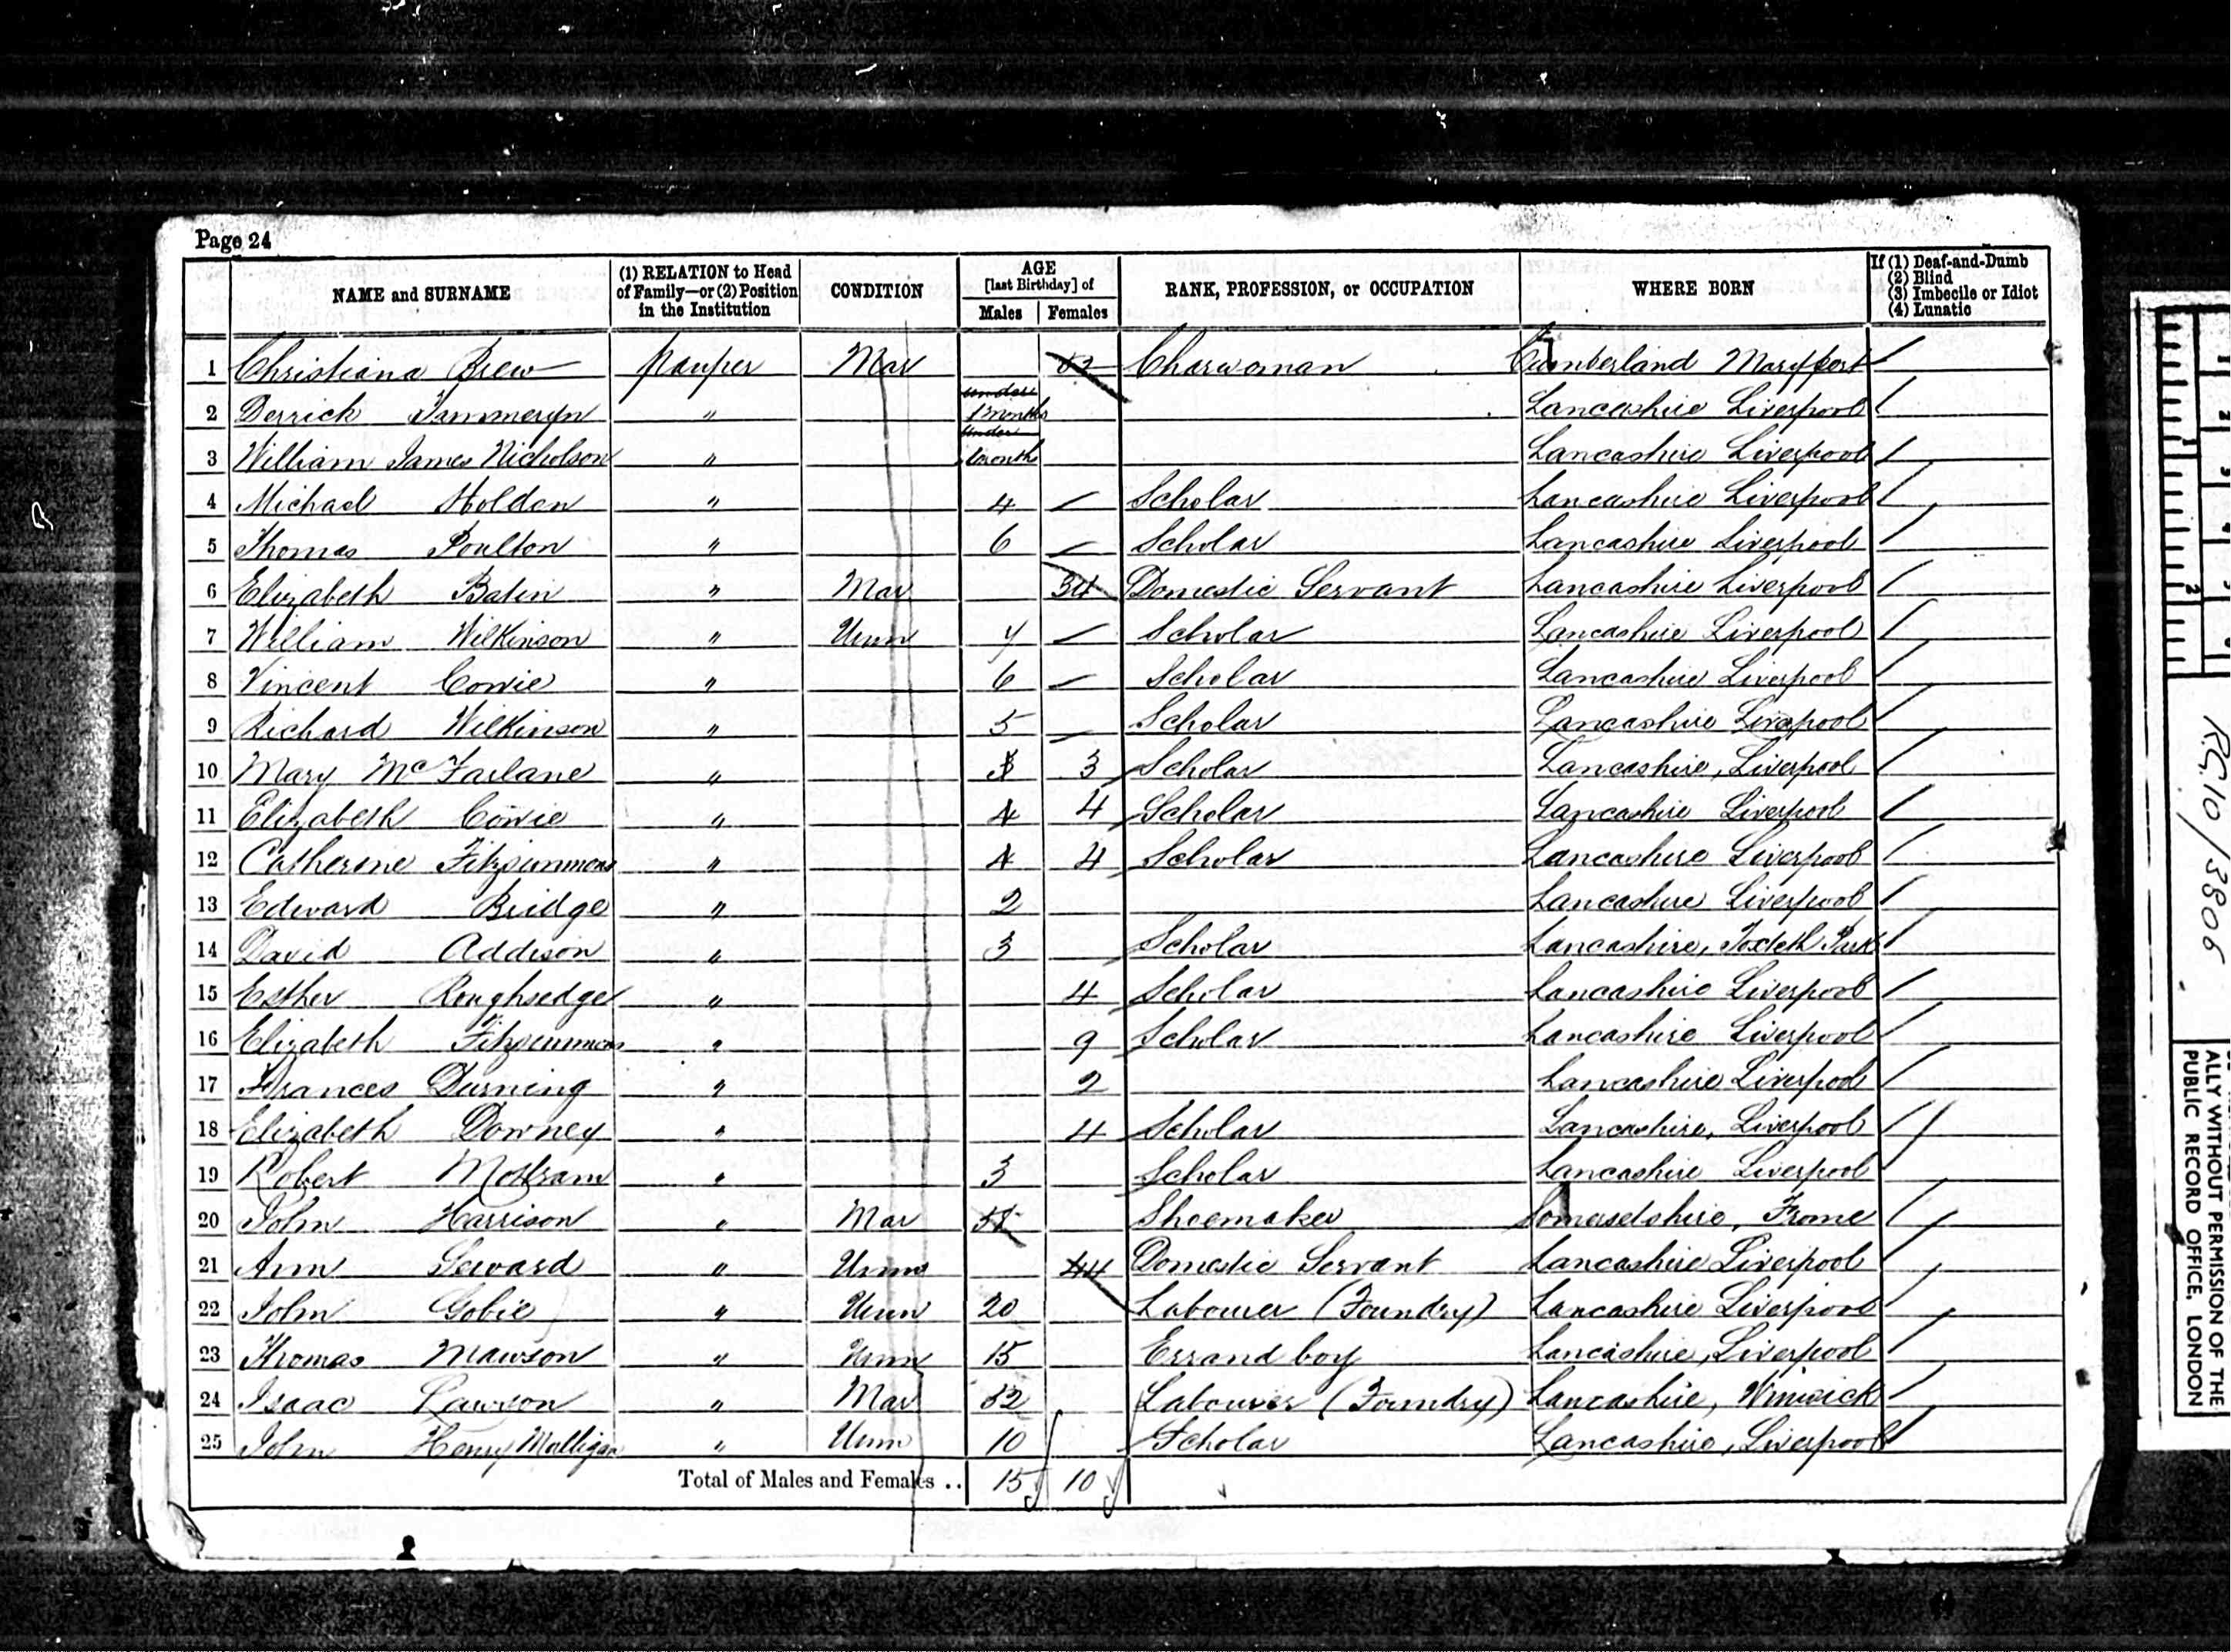 Page 24
NAME and SURNAME (1) RELATION to Head of Family—or (2) Position in the Institution CONDITION AGE [last Birthday] of Males Females RANK, PROFESSION, or OCCUPATION WHERE BORN If (1) Deaf-and-Dumb (2) Blind (3) Imbecile or Idiot (4) Lunatic
1 Christiana Brew pauper Mar Charwoman Cumberland Maryport
2 Derrick " under 1 month Lancashire Liverpool
3 William James Nicholson " under month Lancashire Liverpool
4 Michael Holden " 4 Scholar Lancashire Liverpool
5 Thomas Poulton " 6 Scholar Lancashire Liverpool
6 Elizabeth Batin " Mar 34 Domestic Servant Lancashire Liverpool
7 William Wilkinson " Unm 7 Scholar Lancashire Liverpool
8 Vincent Cowie " 6 Scholar Lancashire Liverpool
9 Richard Wilkinson " 5 Scholar Lancashire Liverpool
10 Mary McFarlane " 3 Scholar Lancashire, Liverpool
11 Elizabeth Cowie " 4 4 Scholar Lancashire Liverpool
12 Catherine Fitzsimmons " 4 4 Scholar Lancashire Liverpool
13 Edward Bridge " 2 Lancashire Liverpool
14 David Addison " 3 Scholar Lancashire, Toxteth Park
15 Esther Roughsedge " 4 Scholar Lancashire Liverpool
16 Elizabeth Fitzsimmons " 9 Scholar Lancashire Liverpool
17 Frances Durning " 2 Lancashire Liverpool
18 Elizabeth Downey " 4 Scholar Lancashire, Liverpool
19 Robert Mottram " 3 Scholar Lancashire Liverpool
20 John Harrison " Mar Shoemaker Somersetshire, Frome
21 Ann Seward " Unm 44 Domestic Servant Lancashire Liverpool
22 John Gobie " Unm 20 Labourer (Foundry) Lancashire Liverpool
23 Thomas Mawson " Unm 15 Errand boy Lancashire, Liverpool
24 Isaac Lawson " Mar 52 Labourer (Foundry) Lancashire, Winwick
25 John Henry Mulligan " Unm 10 Scholar Lancashire, Liverpool
Total of Males and Females .. 15 10
RG10/3806
ALLY WITHOUT PERMISSION OF THE
PUBLIC RECORD OFFICE, LONDON